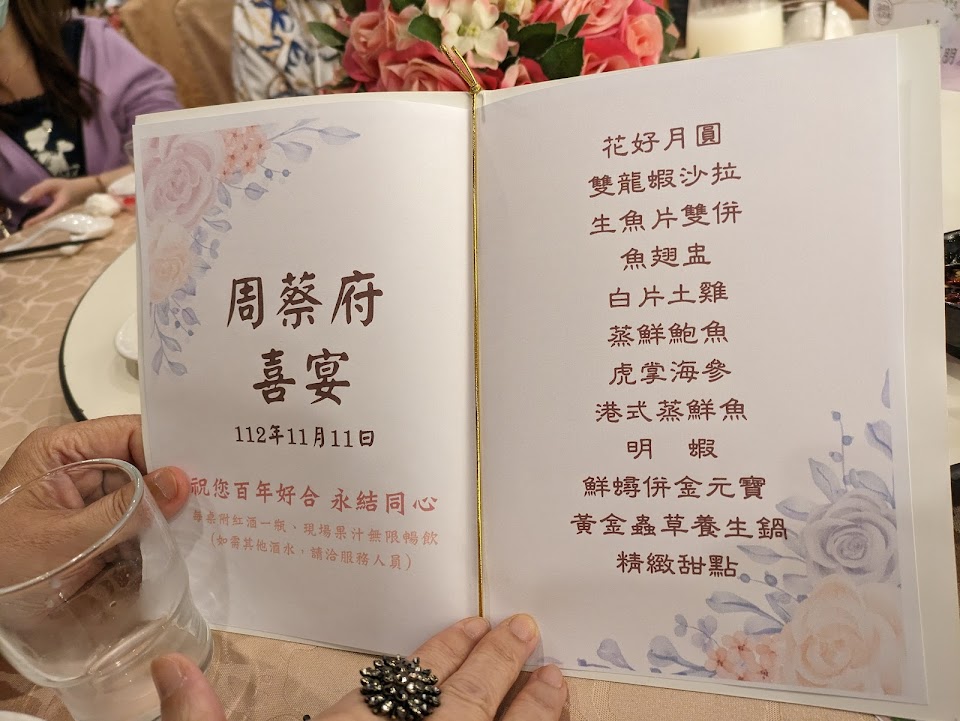 周蔡府
喜宴
112年11月11日
祝您百年好合 永結同心
每桌附紅酒一瓶、現場果汁無限暢飲
(如需其他酒水，請洽服務人員)
花好月圓
雙龍蝦沙拉
生魚片雙併
魚翅盅
白片土雞
蒸鮮鮑魚
虎掌海參
港式蒸鮮魚
明 蝦
鮮蟳併金元寶
黃金蟲草養生鍋
精緻甜點